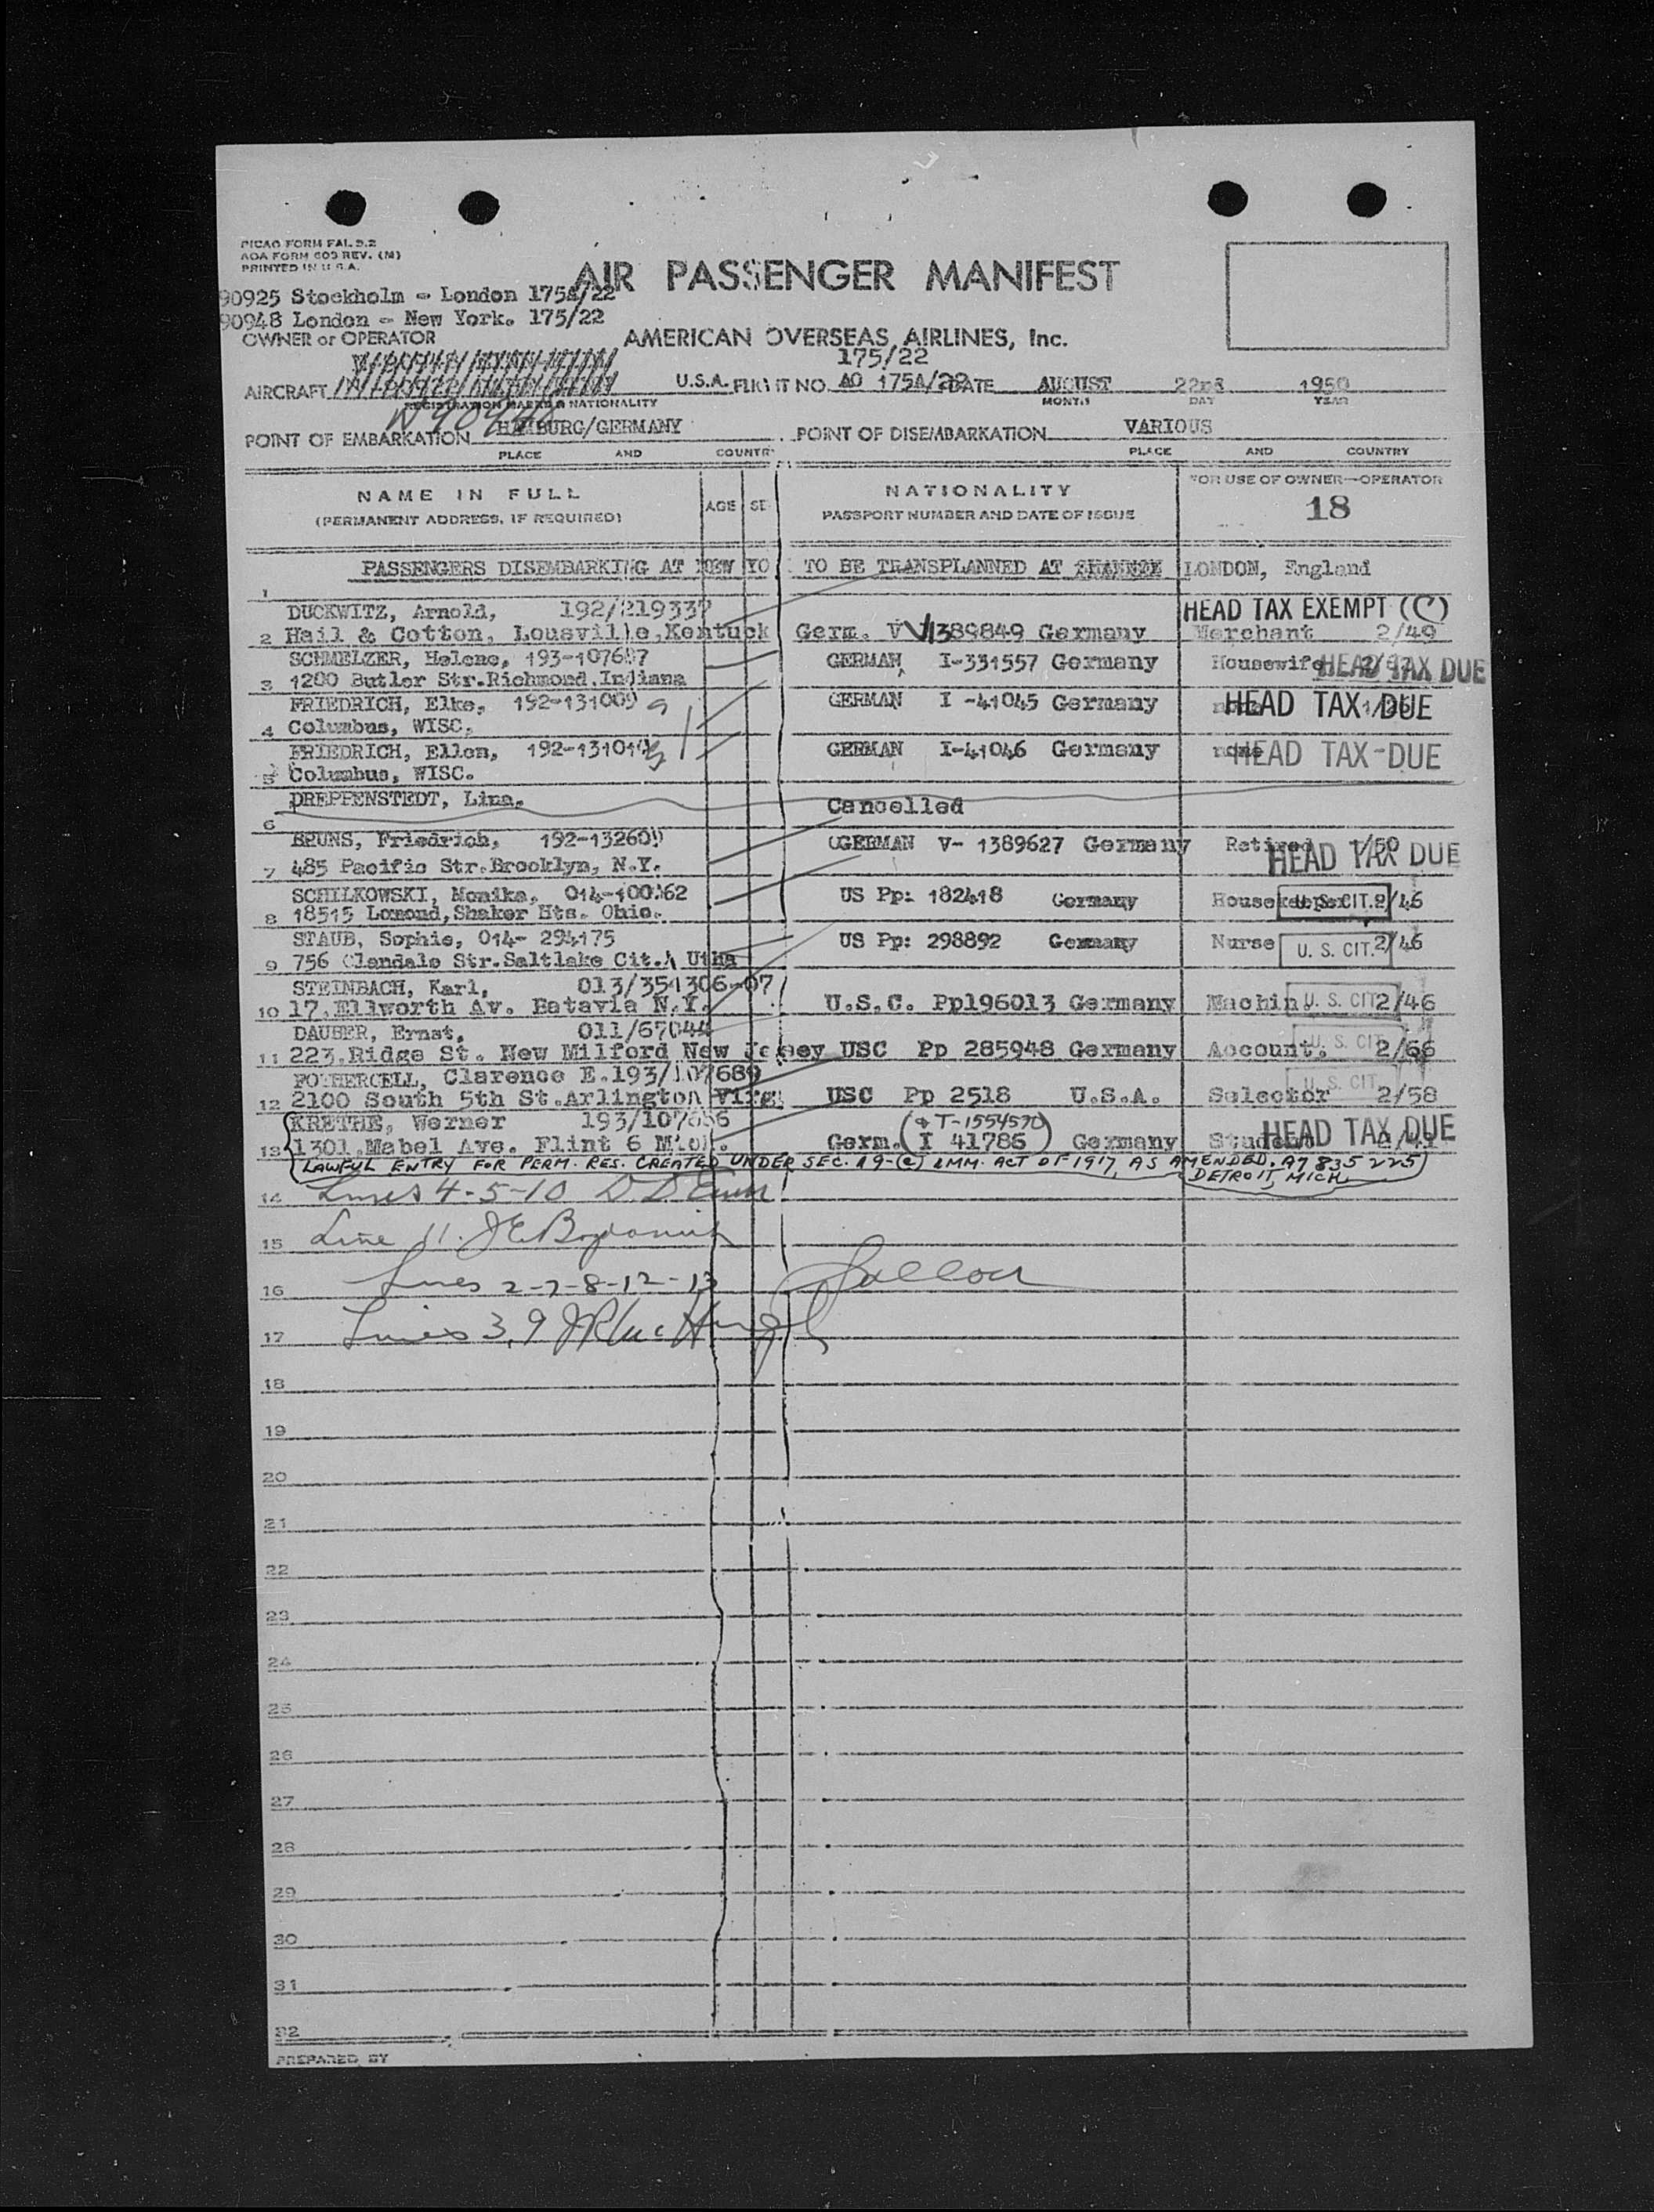 PICAO FORM FAL 9.2
AOA FORM 609 REV. (M)
PRINTED IN U.S.A.
AIR PASSENGER MANIFEST
90925 Stockholm - London 175A/22
90948 London - New York. 175/22
OWNER or OPERATOR AMERICAN OVERSEAS AIRLINES, Inc.
175/22
AIRCRAFT U.S.A. FLIGHT NO. AO 175A/22 DATE AUGUST 22nd 1950
REGISTRATION MARKS & NATIONALITY MONTH DAY YEAR
N90948
POINT OF EMBARKATION HAMBURG/GERMANY POINT OF DISEMBARKATION VARIOUS
PLACE AND COUNTRY PLACE AND COUNTRY
NAME IN FULL AGE SE NATIONALITY FOR USE OF OWNER-OPERATOR
(PERMANENT ADDRESS, IF REQUIRED) PASSPORT NUMBER AND DATE OF ISSUE 18
PASSENGERS DISEMBARKING AT NEW YO TO BE TRANSPLANNED AT SHANNON LONDON, England
1
DUCKWITZ, Arnold, 192/219337 HEAD TAX EXEMPT (C)
2 Hail & Cotton, Lousville, Kentuck Germ. V 1389849 Germany Merchant 2/49
SCHMELZER, Helene, 193-107687 GERMAN I-331557 Germany Housewife HEAD TAX DUE
3 1200 Butler Str.Richmond.Indiana
FRIEDRICH, Elke, 192-131009 9 GERMAN I -41045 Germany HEAD TAX DUE
4 Columbus, WISC.
FRIEDRICH, Ellen, 192-131010 GERMAN I-41046 Germany none HEAD TAX DUE
5 Columbus, WISC.
DREPPENSTEDT, Lina. Cancelled
6
BRUNS, Friedrich, 192-132609 GERMAN V- 1389627 Germany Retired 1/50 HEAD TAX DUE
7 485 Pacific Str.Brooklyn, N.Y.
SCHILKOWSKI, Monika, 014-100262 US Pp: 182418 Germany Housekeeper U. S. CIT. 2/46
8 18515 Lomond, Shaker Hts. Ohio.
STAUB, Sophie, 014- 294175 US Pp: 298892 Germany Nurse U. S. CIT. 2/46
9 756 Glendale Str.Saltlake Cit. Utha
STEINBACH, Karl, 013/351306-07
10 17.Ellworth Av. Batavia N.Y. U.S.C. Pp196013 Germany Machin U. S. CIT 2/46
DAUBER, Ernst, 011/67044
11 223.Ridge St. New Milford New Jersey USC Pp 285948 Germany Account. U. S. CIT 2/66
FOTHERGELL, Clarence E.193/107689
12 2100 South 5th St.Arlington Virg. USC Pp 2518 U.S.A. Selector U. S. CIT 2/58
KRETHE, Werner 193/107686 (& T-1554570)
13 1301.Mabel Ave. Flint 6 Mich. Germ. (I 41786) Germany Student HEAD TAX DUE
LAWFUL ENTRY FOR PERM. RES. CREATED UNDER SEC. 19-(c) IMM. ACT OF 1917, AS AMENDED. A7 835 225
DETROIT, MICH.
14 Lines 4-5-10
15 Line 11.
16 Lines 2-7-8-12-13
17 Lines 3,9
18
19
20
21
22
23
24
25
26
27
28
29
30
31
32
PREPARED BY